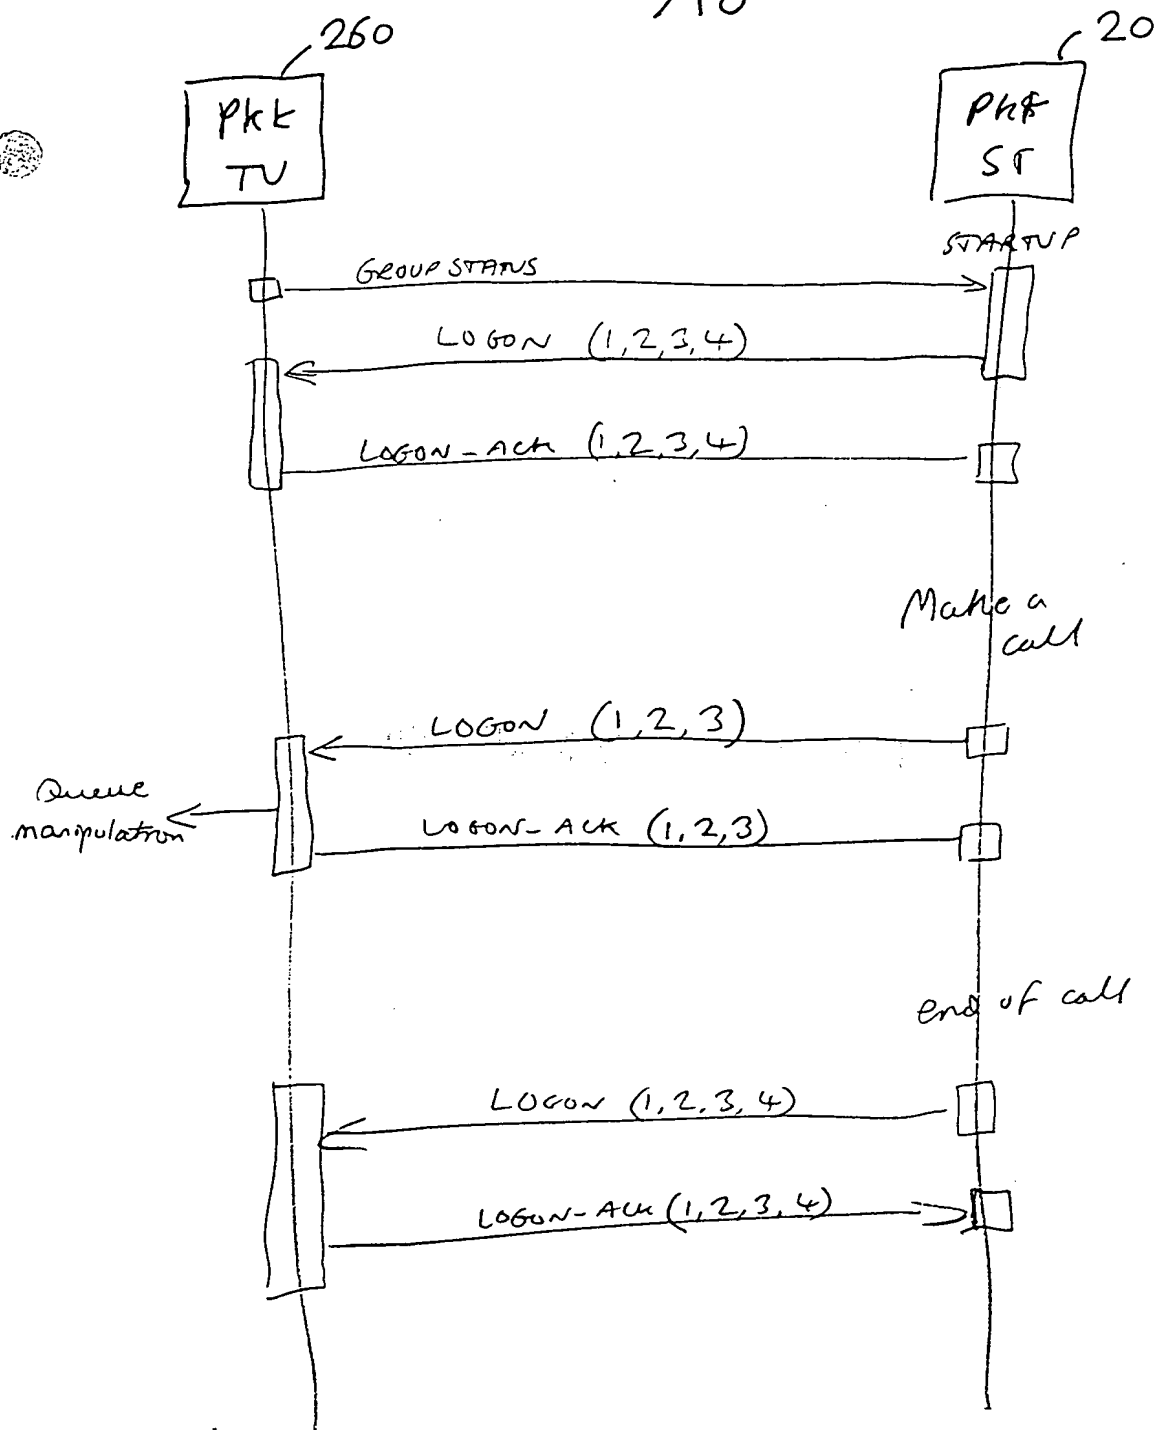 260
20
Pkt
TU
Pkt
ST
STARTUP
GROUP STATUS
LOGON (1,2,3,4)
LOGON-ACK (1,2,3,4)
Make a
call
LOGON (1,2,3)
Queue
manipulation
LOGON-ACK (1,2,3)
end of call
LOGON (1,2,3,4)
LOGON-ACK (1,2,3,4)